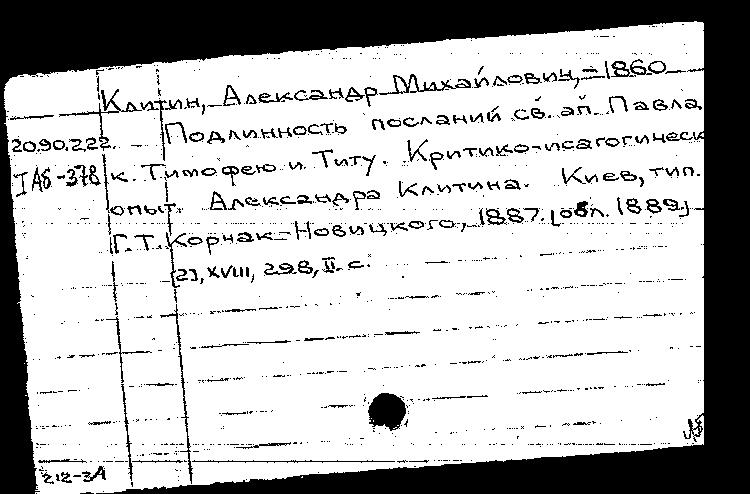 Клитин, Александр Михайлович, - 1860
20.90.2.22. Подлинность посланий св. ап. Павла
IАб-378 к Тимофею и Титу. Критико-исагогическ
опыт. Александра Клитина. Киев, тип.
Г.Т. Корчак-Новицкого, 1887. [обл. 1889]
[2], XVIII, 298, II с.
212-3А